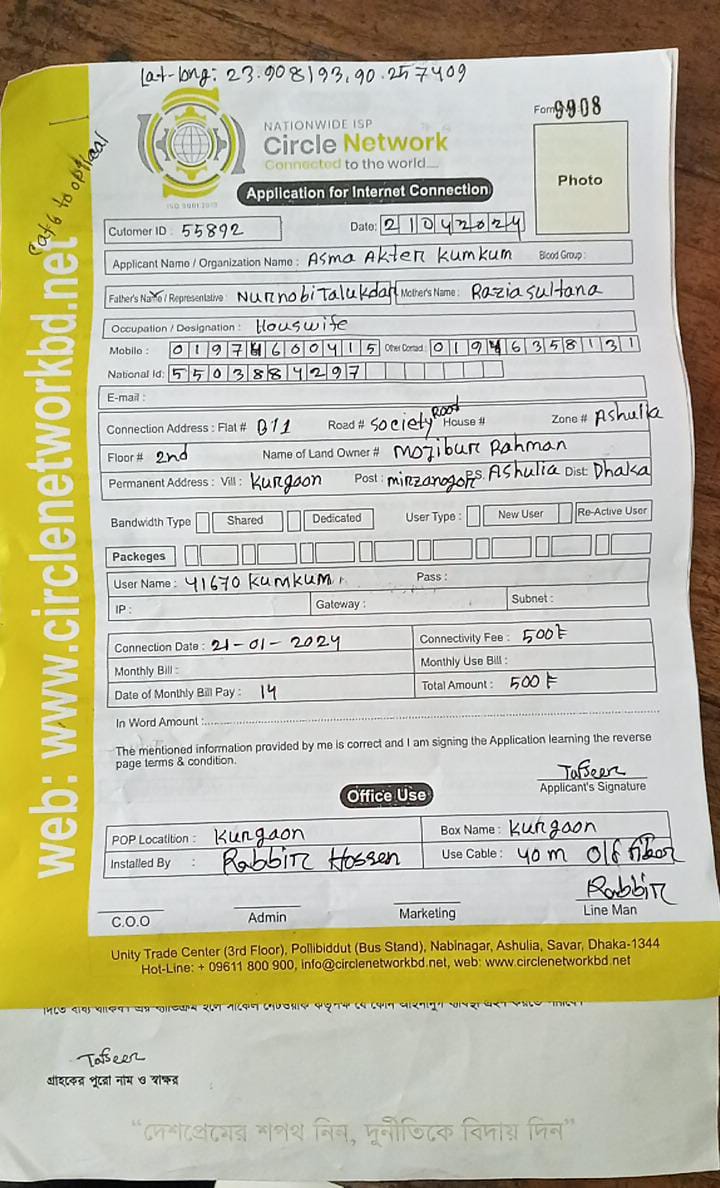 Lat-long: 23.908193, 90.257409
Cat 6 to optical
NATIONWIDE ISP
Form 9908
Circle Network
Connected to the world....
ISO 9001:2015
Photo
Application for Internet Connection
Cutomer ID : 55892 Date: 21042024
Applicant Name / Organization Name : Asma Akter Kumkum Blood Group :
Father's Name / Representative : Nurnobi Talukdar Mother's Name : Razia sultana
Occupation / Designation : Houswife
Mobile : 01974660415 Other Contact : 01946358131
National Id: 5503884297
E-mail :
Connection Address : Flat # B11 Road # Society Road House # Zone # Ashulia
Floor # 2nd Name of Land Owner # Mojibur Rahman
Permanent Address : Vill : Kurgaon Post : mirzanagor P.S. Ashulia Dist: Dhaka
Bandwidth Type Shared Dedicated User Type : New User Re-Active User
Packeges
User Name : 41670 Kumkum Pass :
IP : Gateway : Subnet :
Connection Date : 21-01-2024 Connectivity Fee : 500৳
Monthly Bill : Monthly Use Bill :
Date of Monthly Bill Pay : 14 Total Amount : 500৳
In Word Amount :
The mentioned information provided by me is correct and I am signing the Application learning the reverse
page terms & condition.
Tafseer
Applicant's Signature
Office Use
POP Locatition : Kurgaon Box Name : Kurgaon
Installed By : Rabbir Hossen Use Cable : 40m Olf fiber
Rabbir
C.O.O Admin Marketing Line Man
Unity Trade Center (3rd Floor), Pollibiddut (Bus Stand), Nabinagar, Ashulia, Savar, Dhaka-1344
Hot-Line: + 09611 800 900, info@circlenetworkbd.net, web: www.circlenetworkbd.net
web: www.circlenetworkbd.net
Tafseer
গ্রাহকের পুরো নাম ও স্বাক্ষর
“দেশপ্রেমের শপথ নিন, দুর্নীতিকে বিদায় দিন”